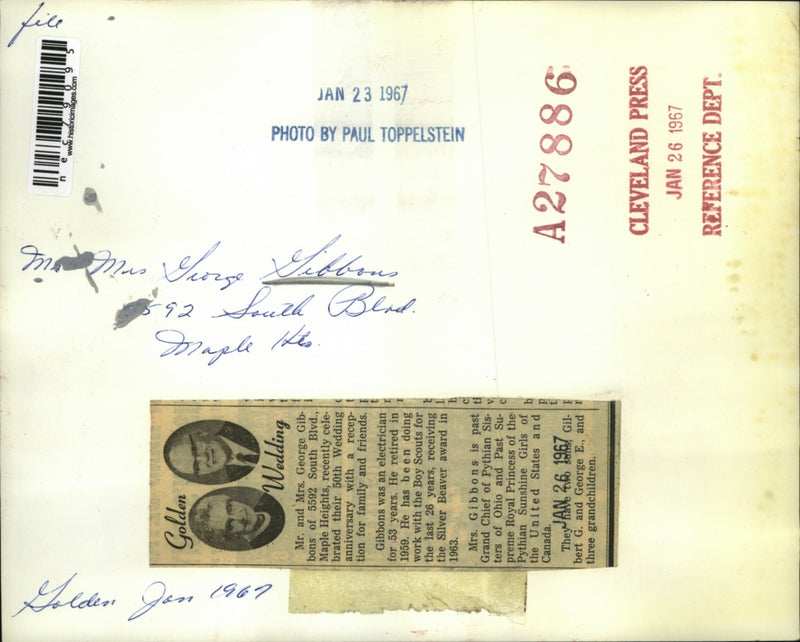 file
necz79095
www.historicimages.com
JAN 23 1967
PHOTO BY PAUL TOPPELSTEIN
A27886
CLEVELAND PRESS
JAN 26 1967
REFERENCE DEPT.
Mrs George Gibbons
5592 South Blvd.
Maple Hts.
Golden
Wedding
Mr. and Mrs. George Gib-
bons of 5592 South Blvd.,
Maple Heights, recently cele-
brated their 50th Wedding
anniversary with a recep-
tion for family and friends.
Gibbons was an electrician
for 53 years. He retired in
1959. He has been doing
work with the Boy Scouts for
the last 26 years, receiving
the Silver Beaver award in
1963.
Mrs. Gibbons is past
Grand Chief of Pythian Sis-
ters of Ohio and Past Su-
preme Royal Princess of the
Pythian Sunshine Girls of
the United States and
Canada.
JAN 26 1967
They have two sons, Gil-
bert G. and George E., and
three grandchildren.
Golden Jan 1967